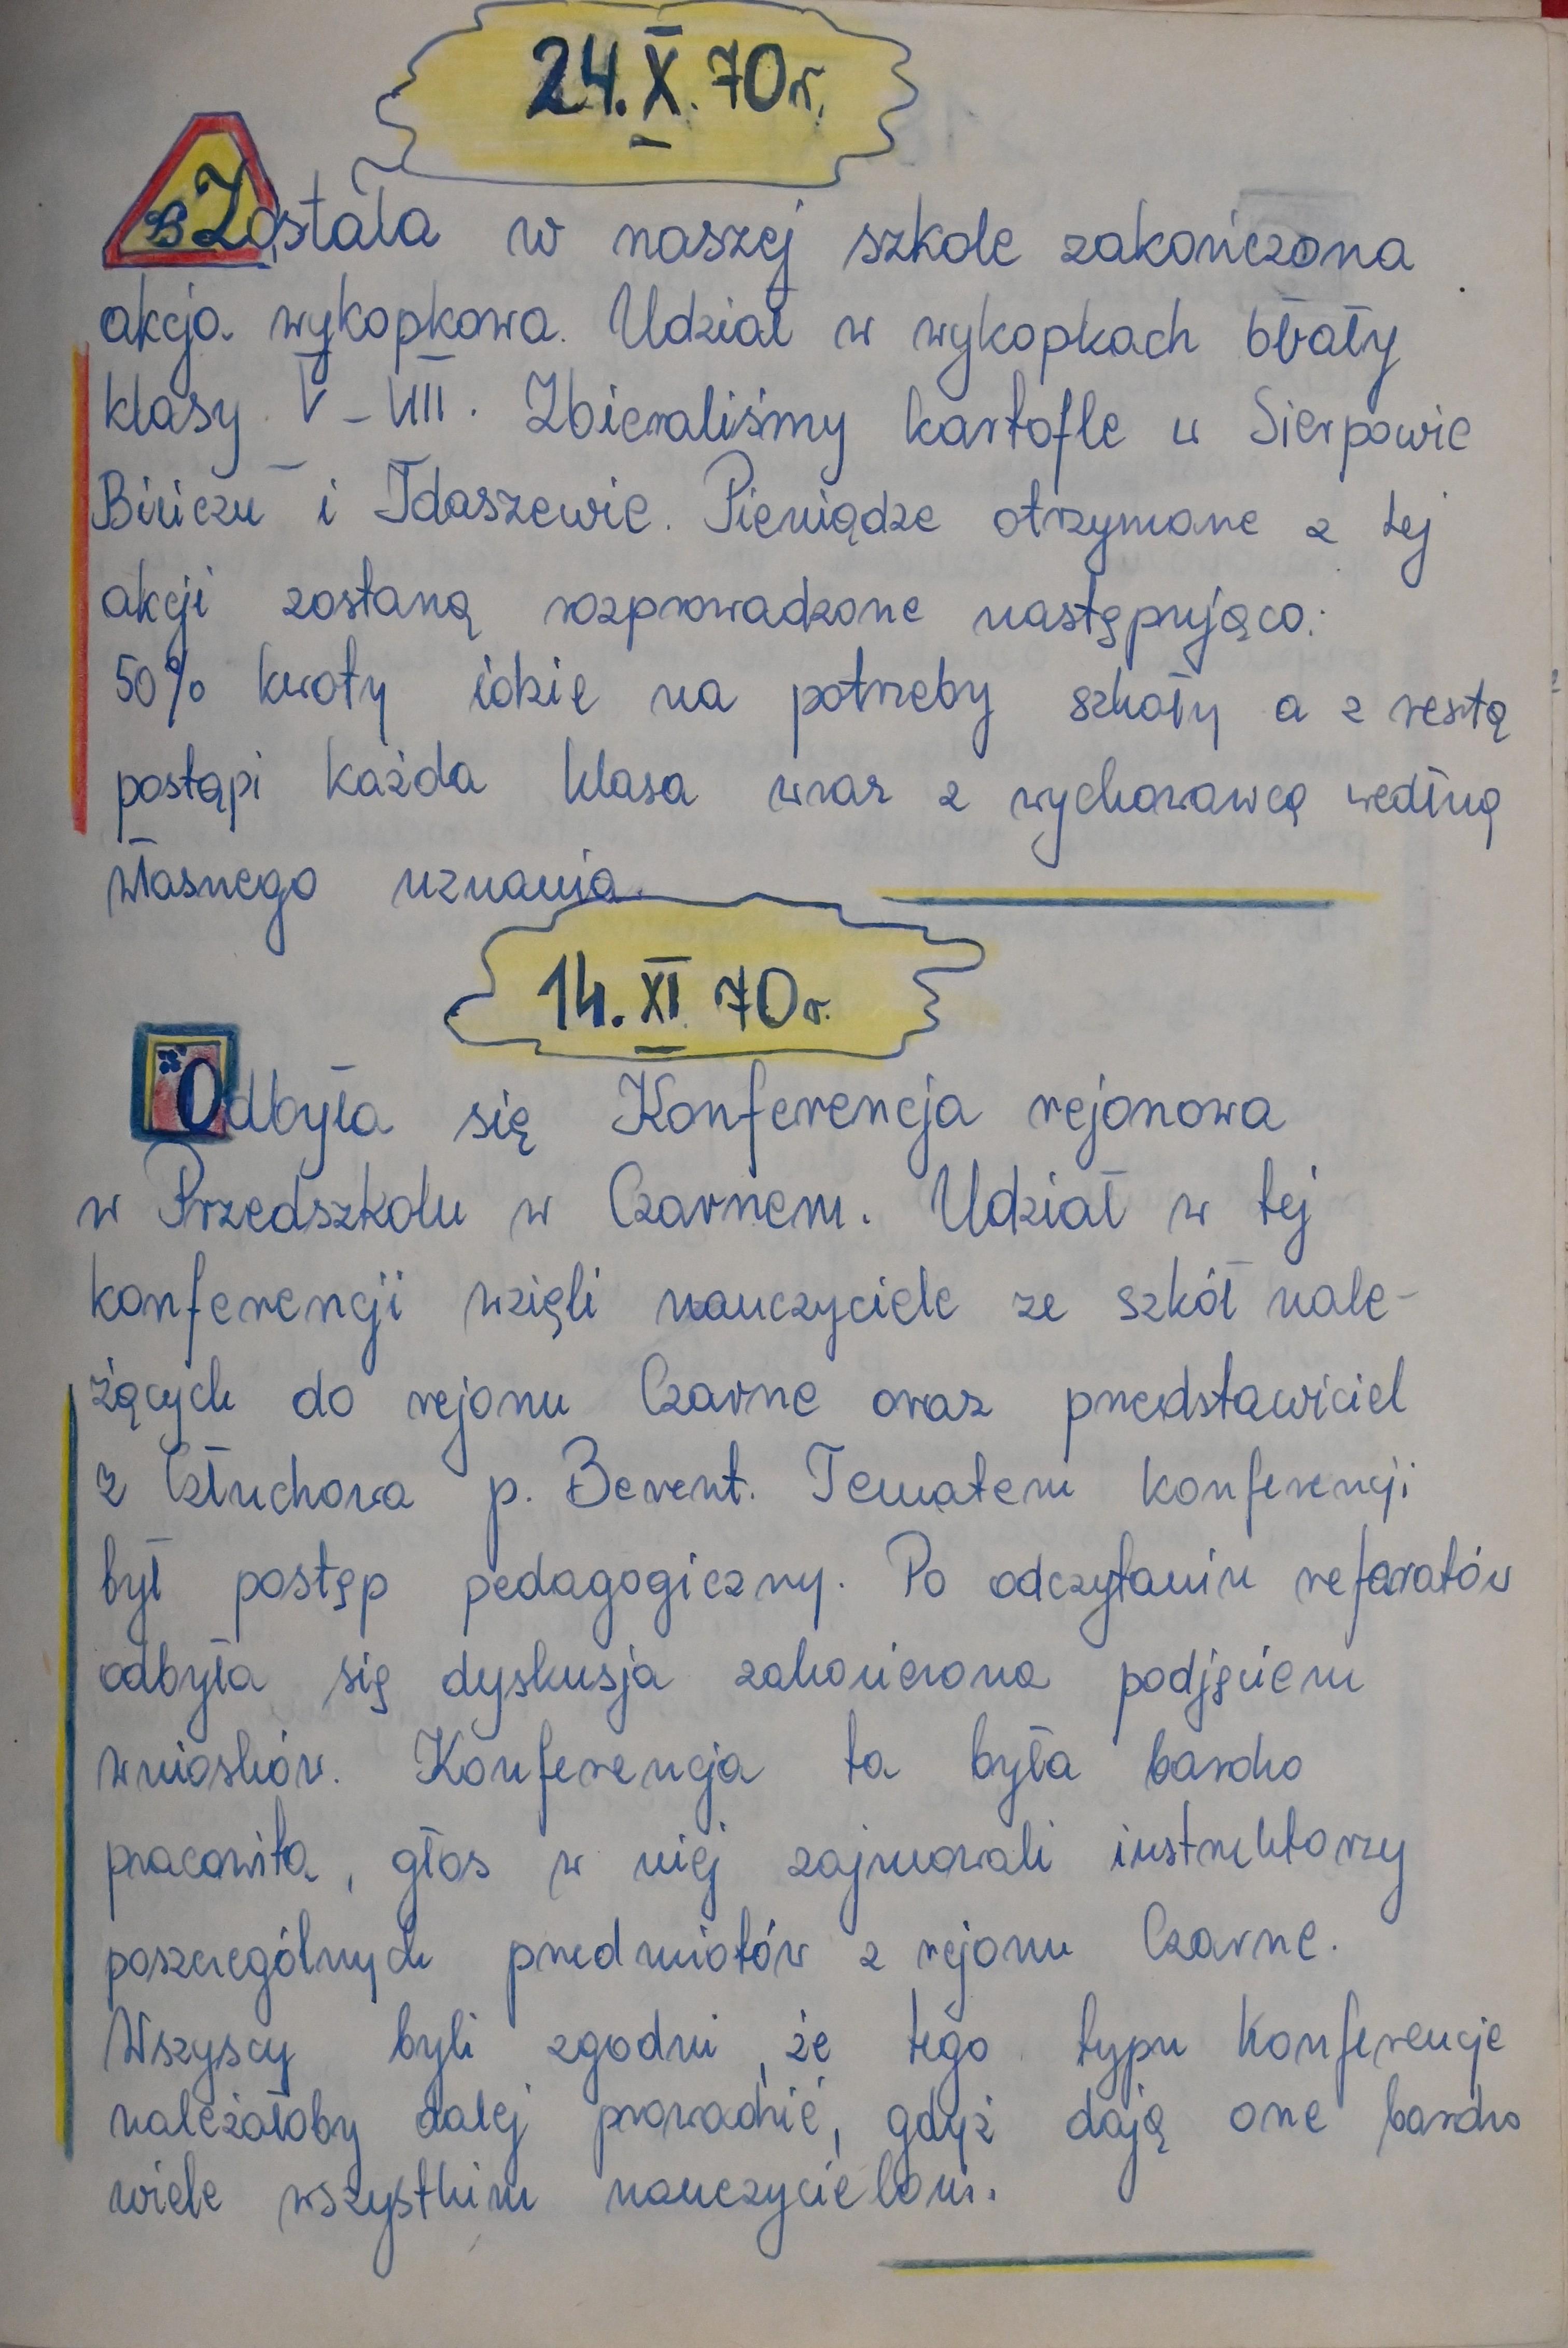 24.X.70r.
Została w naszej szkole zakończona
akcja wykopkowa. Udział w wykopkach brały
klasy V-VIII. Zbieraliśmy kartofle w Sierpowie
Bińczu i Idaszewie. Pieniądze otrzymane z tej
akcji zostaną rozprowadzone następująco:
50% kwoty idzie na potrzeby szkoły a z resztą
postąpi każda klasa wraz z wychowawcą według
własnego uznania.
14.XI.70r.
Odbyła się Konferencja rejonowa
w Przedszkolu w Czarnem. Udział w tej
konferencji wzięli nauczyciele ze szkół nale-
żących do rejonu Czarne oraz przedstawiciel
z Człuchowa p. Berent. Tematem konferencji
był postęp pedagogiczny. Po odczytaniu referatów
odbyła się dyskusja zakończona podjęciem
wniosków. Konferencja ta była bardzo
pracowita, głos w niej zajmowali instruktorzy
poszczególnych przedmiotów z rejonu Czarne.
Wszyscy byli zgodni, że tego typu konferencje
należałoby dalej prowadzić, gdyż dają one bardzo
wiele wszystkim nauczycielom.